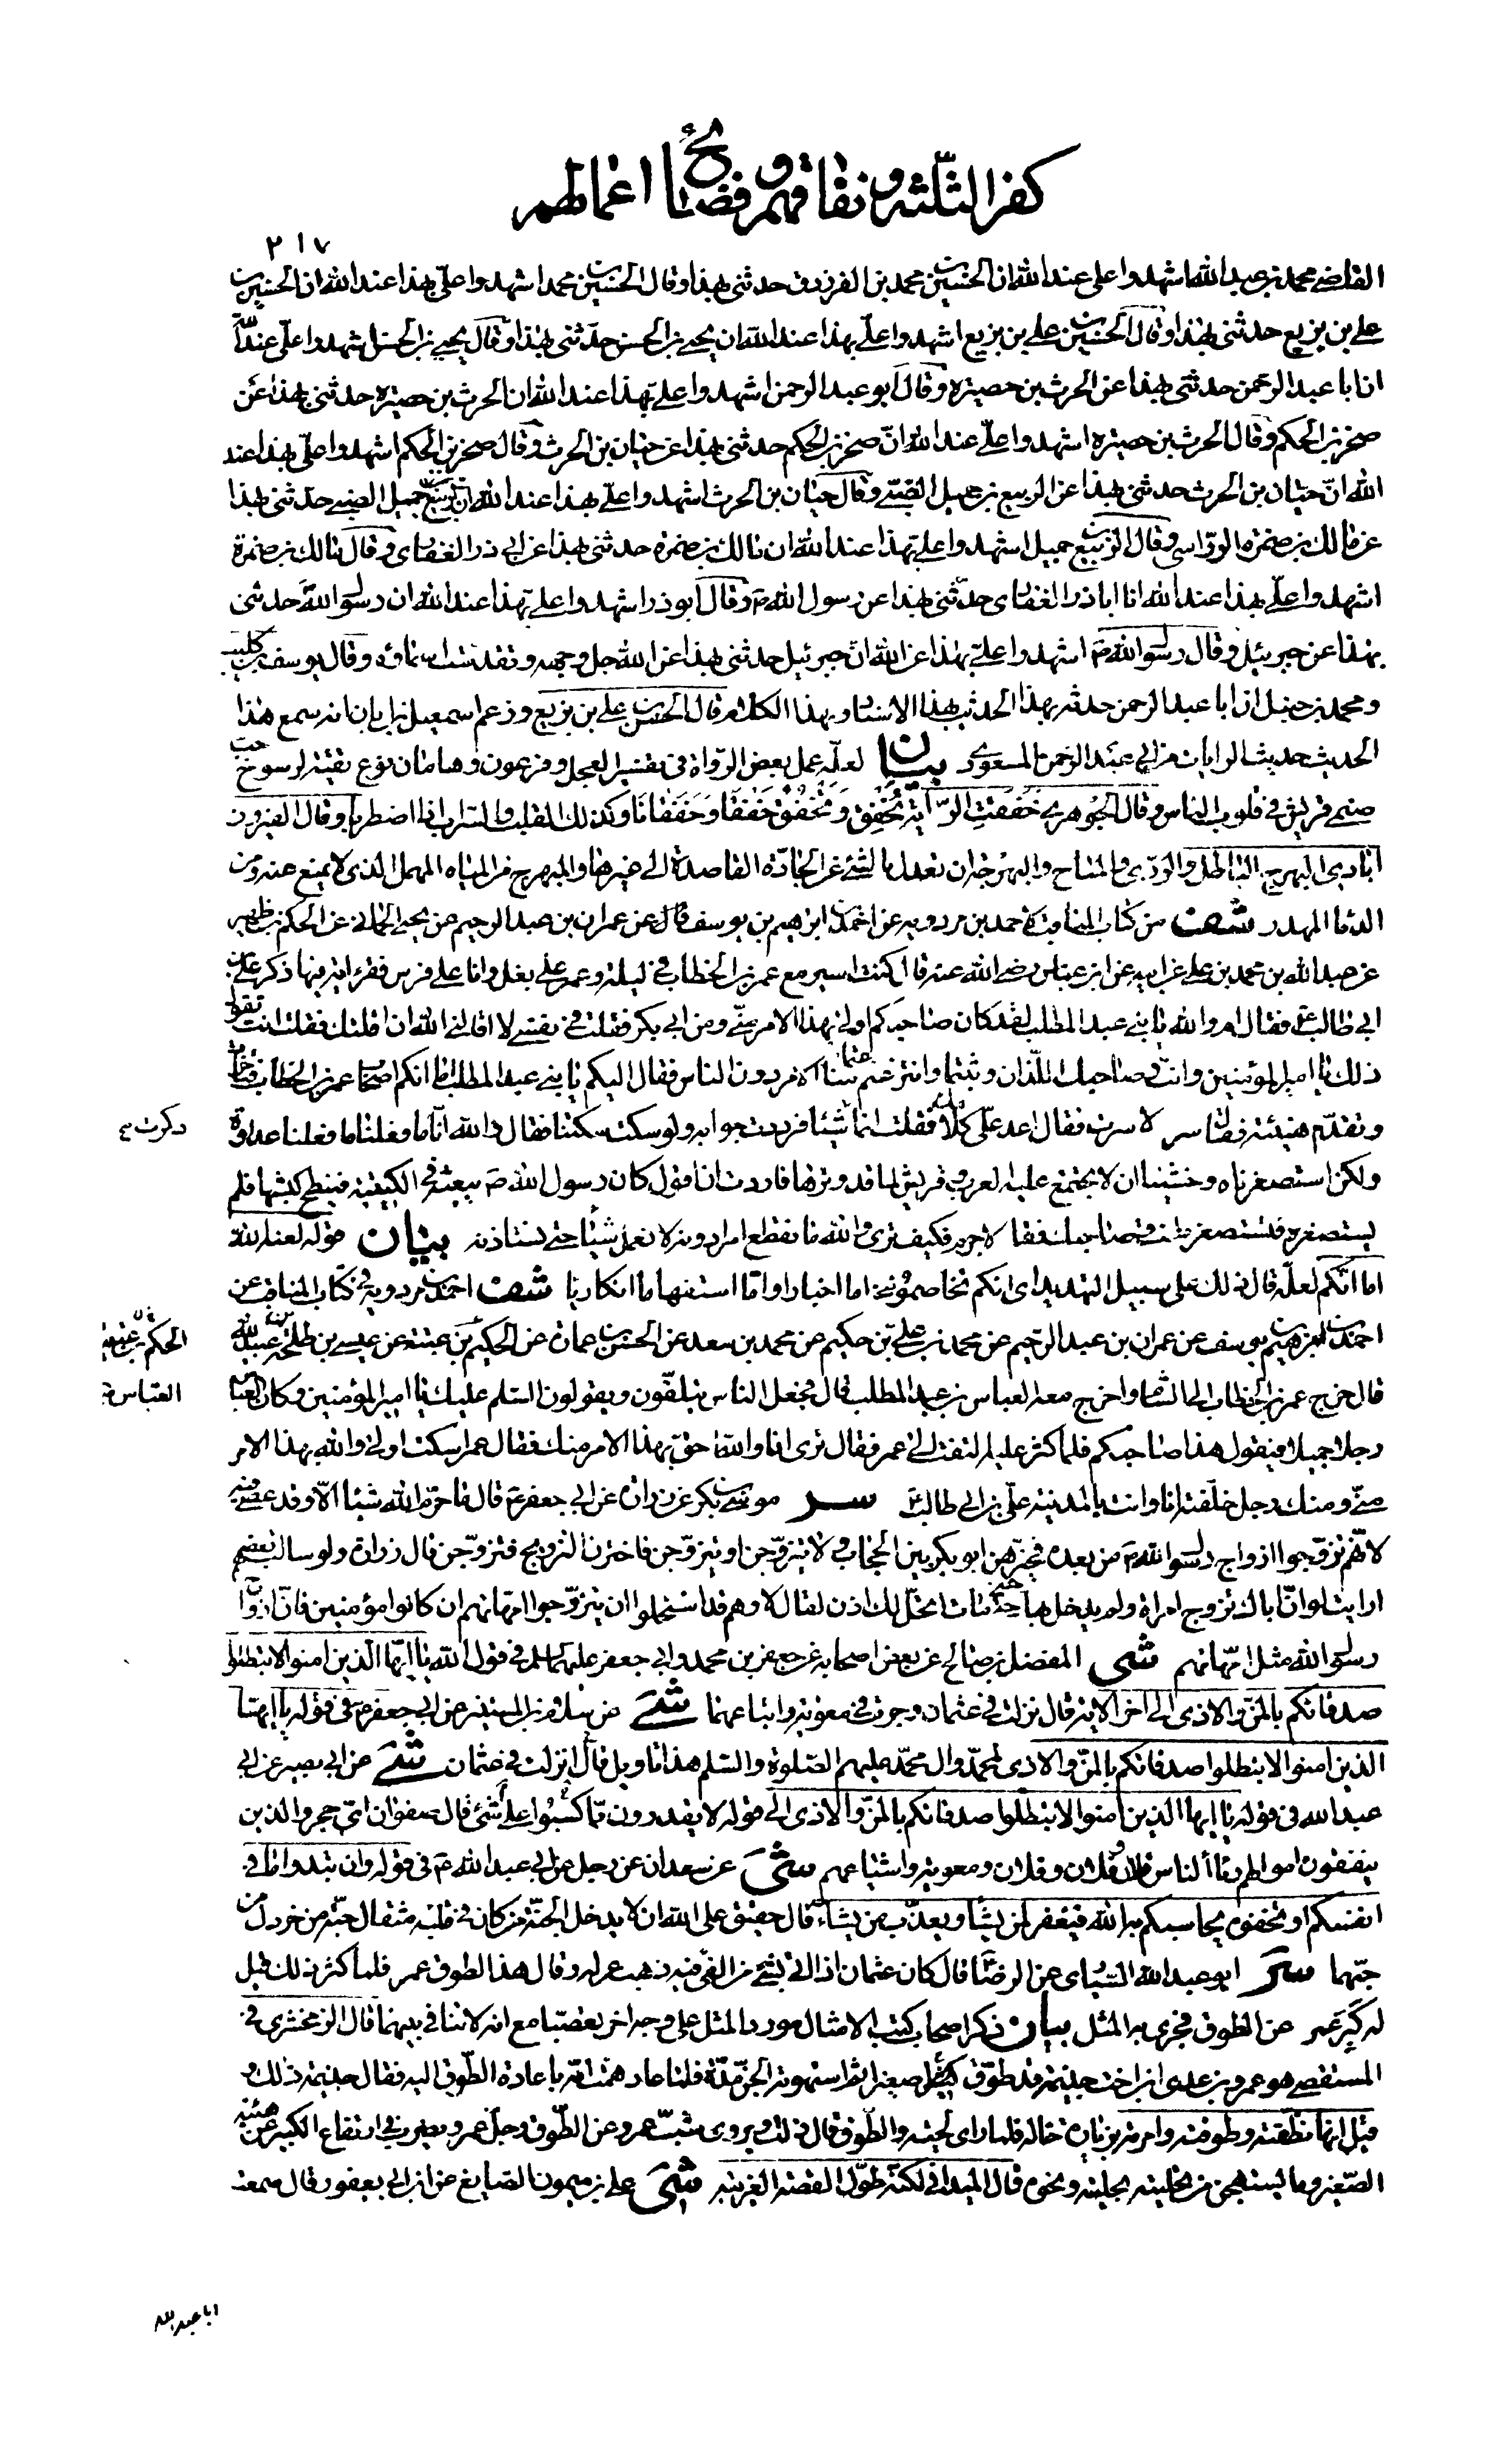 كفر الثلثة و نفاقهم و فضايح اعمالهم
٢١٧
القاضى محمد بن عبد الله اشهدوا على عند الله ان الحسين بن محمد بن الفرزدق حدثنى بهذا وقال الحسين بن محمد اشهدوا علىّ بهذا عند الله ان الحسين بن
على بن بزيع حدثنى بهذا وقال الحسين بن على بن بزيع اشهدوا علىّ بهذا عند الله ان يحيى بن الحسن حدثنى بهذا وقال يحيى بن الحسن اشهدوا علىّ عند الله
ان ابا عبد الرحمن حدثنى بهذا عن الحرث بن حصيرة وقال ابو عبد الرحمن اشهدوا علىّ بهذا عند الله ان الحرث بن حصيرة حدثنى بهذا عن
صخر بن الحكم وقال الحرث بن حصيرة اشهدوا علىّ عند الله انّ صخر بن الحكم حدثنى بهذا عن حيان بن الحرث وقال صخر بن الحكم اشهدوا علىّ بهذا عند
الله انّ حيّان بن الحرث حدثنى بهذا عن الربيع بن جميل الضبّى وقال حيان بن الحرث اشهدوا علىّ بهذا عند الله ان الربيع بن جميل الضبى حدّثنى بهذا
عن مالك بن ضمرة الروّاسى وقال الربيع بن جميل اشهدوا علىّ بهذا عند الله ان مالك بن ضمرة حدثنى بهذا عن ابى ذر الغفارى وقال مالك بن ضمرة
اشهدوا علىّ بهذا عند الله ان ابا ذر الغفارى حدّثنى بهذا عن رسول الله ص وقال ابو ذر اشهدوا علىّ بهذا عند الله ان رسول الله ص حدثنى
بهذا عن جبرئيل وقال رسول الله ص اشهدوا علىّ بهذا عند الله انّ جبرئيل حدثنى بهذا عن الله جل وجهه وتقدست اسماؤه وقال يوسف بن كليب
ومحمد بن حنبل ان ابا عبد الرحمن حدثه بهذا الحديث بهذا الاسناد وبهذا الكلام قال الحسن بن على بن بزيع وزعم اسمعيل بن ابان انه سمع هذا
الحديث حديث الرايات من ابى عبد الرحمن المسعودى بيان لعلّه عمل بعض الرّواة فى تفسير العجل وفرعون وهامان نوع تقية لرسوخ حبّ
صنمى قريش فى قلوب الناس وقال الجوهرى خفقت الرّاية تخفق وتخفق خفقا وخفقانا وكذلك القلب والسراب اذا اضطربا وقال الفيروز
آبادى البهرج الباطل والردّى والمباح والبهرجة ان تعدل بالشئ عن الجادّة القاصدة الى غيرها والمبهرج من المياه المهمل الذى لا يمنع عنه ومن
الدّماء المهدر شف من كتاب المناقب لاحمد بن مردويه عن احمد بن ابرهيم بن يوسف قال عن عمران بن عبد الرحيم عن يحيى الحمانى عن الحكم بن ظهير
عن عبد الله بن محمد بن على عن ابيه عن ابن عباس رضى الله عنه قال كنت اسير مع عمر بن الخطاب فى ليلة وعمر على بغل وانا على فرس فقرء اية فيها ذكر على بن
ابى طالب ع فقال ام والله يا بنى عبد المطلب لقد كان صاحبكم اولى بهذا الامر منّى ومن ابى بكر فقلت فى نفسى لا اقالنى الله ان اقلتك فقلت انت تقول
ذلك يا امير المؤمنين وانت وصاحبك اللّذان وثبتما وانتزعتما منّا الامر دون الناس فقال اليكم يا بنى عبد المطلب اما انكم اصحاب عمر بن الخطاب فتأخرت
وتقدّم هنيئة فقال سر لا سرت فقال اعد علىّ كلامك فقلت انما ذكرت شيئا فرددت جوابه ولو سكت سكتنا فقال والله انّا ما فعلنا ما فعلنا عداوة
ولكن استصغرناه وخشينا ان لا يجتمع عليه العرب وقريش لما قد وترها فاردت ان اقول كان رسول الله ص يبعثه فى الكتيبة فينطح كبشها فلم
يستصغره فتستصغره انت وصاحبك فقال لا جرم فكيف ترى والله ما نقطع امرا دونه ولا نعمل شيئا حتى نستاذنه بيان قوله لعنه الله
اما انّكم لعلّه قال ذلك على سبيل التهديد اى انكم تخاصمونه اما اخبارا وامّا استفهاما انكاريا شف احمد بن مردويه فى كتاب المناقب عن
احمد بن ابرهيم بن يوسف عن عمران بن عبد الرّحيم عن محمد بن على بن حكيم عن محمد بن سعد عن الحسن بن عمارة عن الحكم بن عتبة عن عيسى بن طلحة بن عبيد الله
قال خرج عمر بن الخطاب الى الشام واخرج معه العباس بن عبد المطلب قال فجعل الناس يتلقّون ويقولون السلم عليك يا امير المؤمنين وكان العباس
رجلا جميلا فيقول هذا صاحبكم فلما كثر عليه التفت الى عمر فقال ترى انا والله احقّ بهذا الامر منك فقال عمر اسكت اولى والله بهذا الامر
منّى ومنك رجل خلّفته انا وانت بالمدينة علىّ بن ابى طالب ع سر موسى بن بكر عن زرارة عن ابى جعفر ع قال ما حرّم الله شيئا الّا وقد عصى فيه
لانهم تزوّجوا ازواج رسول الله ص من بعده فخيّرهنّ ابو بكر بين الحجاب ولا يتزوّجن او يتزوّجن فاخترن التزويج فتزوّجن قال زرارة ولو سالت بعضهم
ارايت لو انّ اباك تزوج امراة ولم يدخل بها حتى مات اتحلّ لك اذن لقال لا وهم قد استحلوا ان يتزوّجوا امهاتهم ان كانوا مؤمنين فانّ ازواج
رسول الله مثل امّهاتهم شى المفضل بن صالح عن بعض اصحابه عن جعفر بن محمد وابى جعفر عليهما السلم فى قول الله يا ايّها الذين امنوا لا تبطلوا
صدقاتكم بالمنّ والاذى الى اخر الاية قال نزلت فى عثمان وجرت فى معوية واتباعهما شى عن سلام بن المستنير عن ابى جعفر ع فى قوله يا ايها
الذين امنوا لا تبطلوا صدقاتكم بالمنّ والاذى لمحمّد وال محمّد عليهم الصّلوة والسّلم هذا تاويل قال انزلت فى عثمان شى عن ابى بصير عن ابى
عبد الله فى قوله يا ايها الذين امنوا لا تبطلوا صدقاتكم بالمنّ والاذى الى قوله لا يقدرون على شئ ممّا كسبوا قال صفوان اىّ حجر والذين
ينفقون اموالهم رئاء الناس فلان وفلان وفلان ومعوية واشياعهم شى عن سعدان عن رجل عن ابى عبد الله ع فى قوله وان تبدوا ما فى
انفسكم او تخفوه يحاسبكم به الله فيغفر لمن يشاء ويعذّب من يشاء قال حقيق على الله ان لا يدخل الجنّة من كان فى قلبه مثقال حبّة من خردل من
حبّهما سر ابو عبد الله السّيارى عن الرضا ع قال كان عثمان اذا اتى بشئ من الفئ فيه ذهب عزله وقال هذا الطوق عمر فلما كثر ذلك قيل
له كبر عمر عن الطوق فجرى به المثل بيان ذكر اصحاب كتب الامثال مورد المثل على وجه اخر تعصّبا مع انه لا تنافى بينهما قال الزمخشرى فى
المستقصى هو عمرو بن عدى ابن اخت جذيمة قد طوّق صغيرا ثم استهوته الجنّ مدّة فلما عاد همّت امّه باعادة الطّوق اليه فقال جذيمة ذلك و
قيل انها نظّفته وطوقته وامرته بزيارة خاله فلما راى لحيته والطوق قال ذلك ويروى شبّ عمرو عن الطّوق وجلّ عمرو يضرب فى ارتفاع الكبير عن هيئة
الصّغير وما يستهجن من تحليته بحليته ونحوه قال الميدانى لكنّه طوّل القصة الغريبة شى على بن ميمون الصّايغ عن ابن ابى يعفور قال سمعت
ذكرت م
الحكم بن عتيبة
العباس
ابا عبد الله